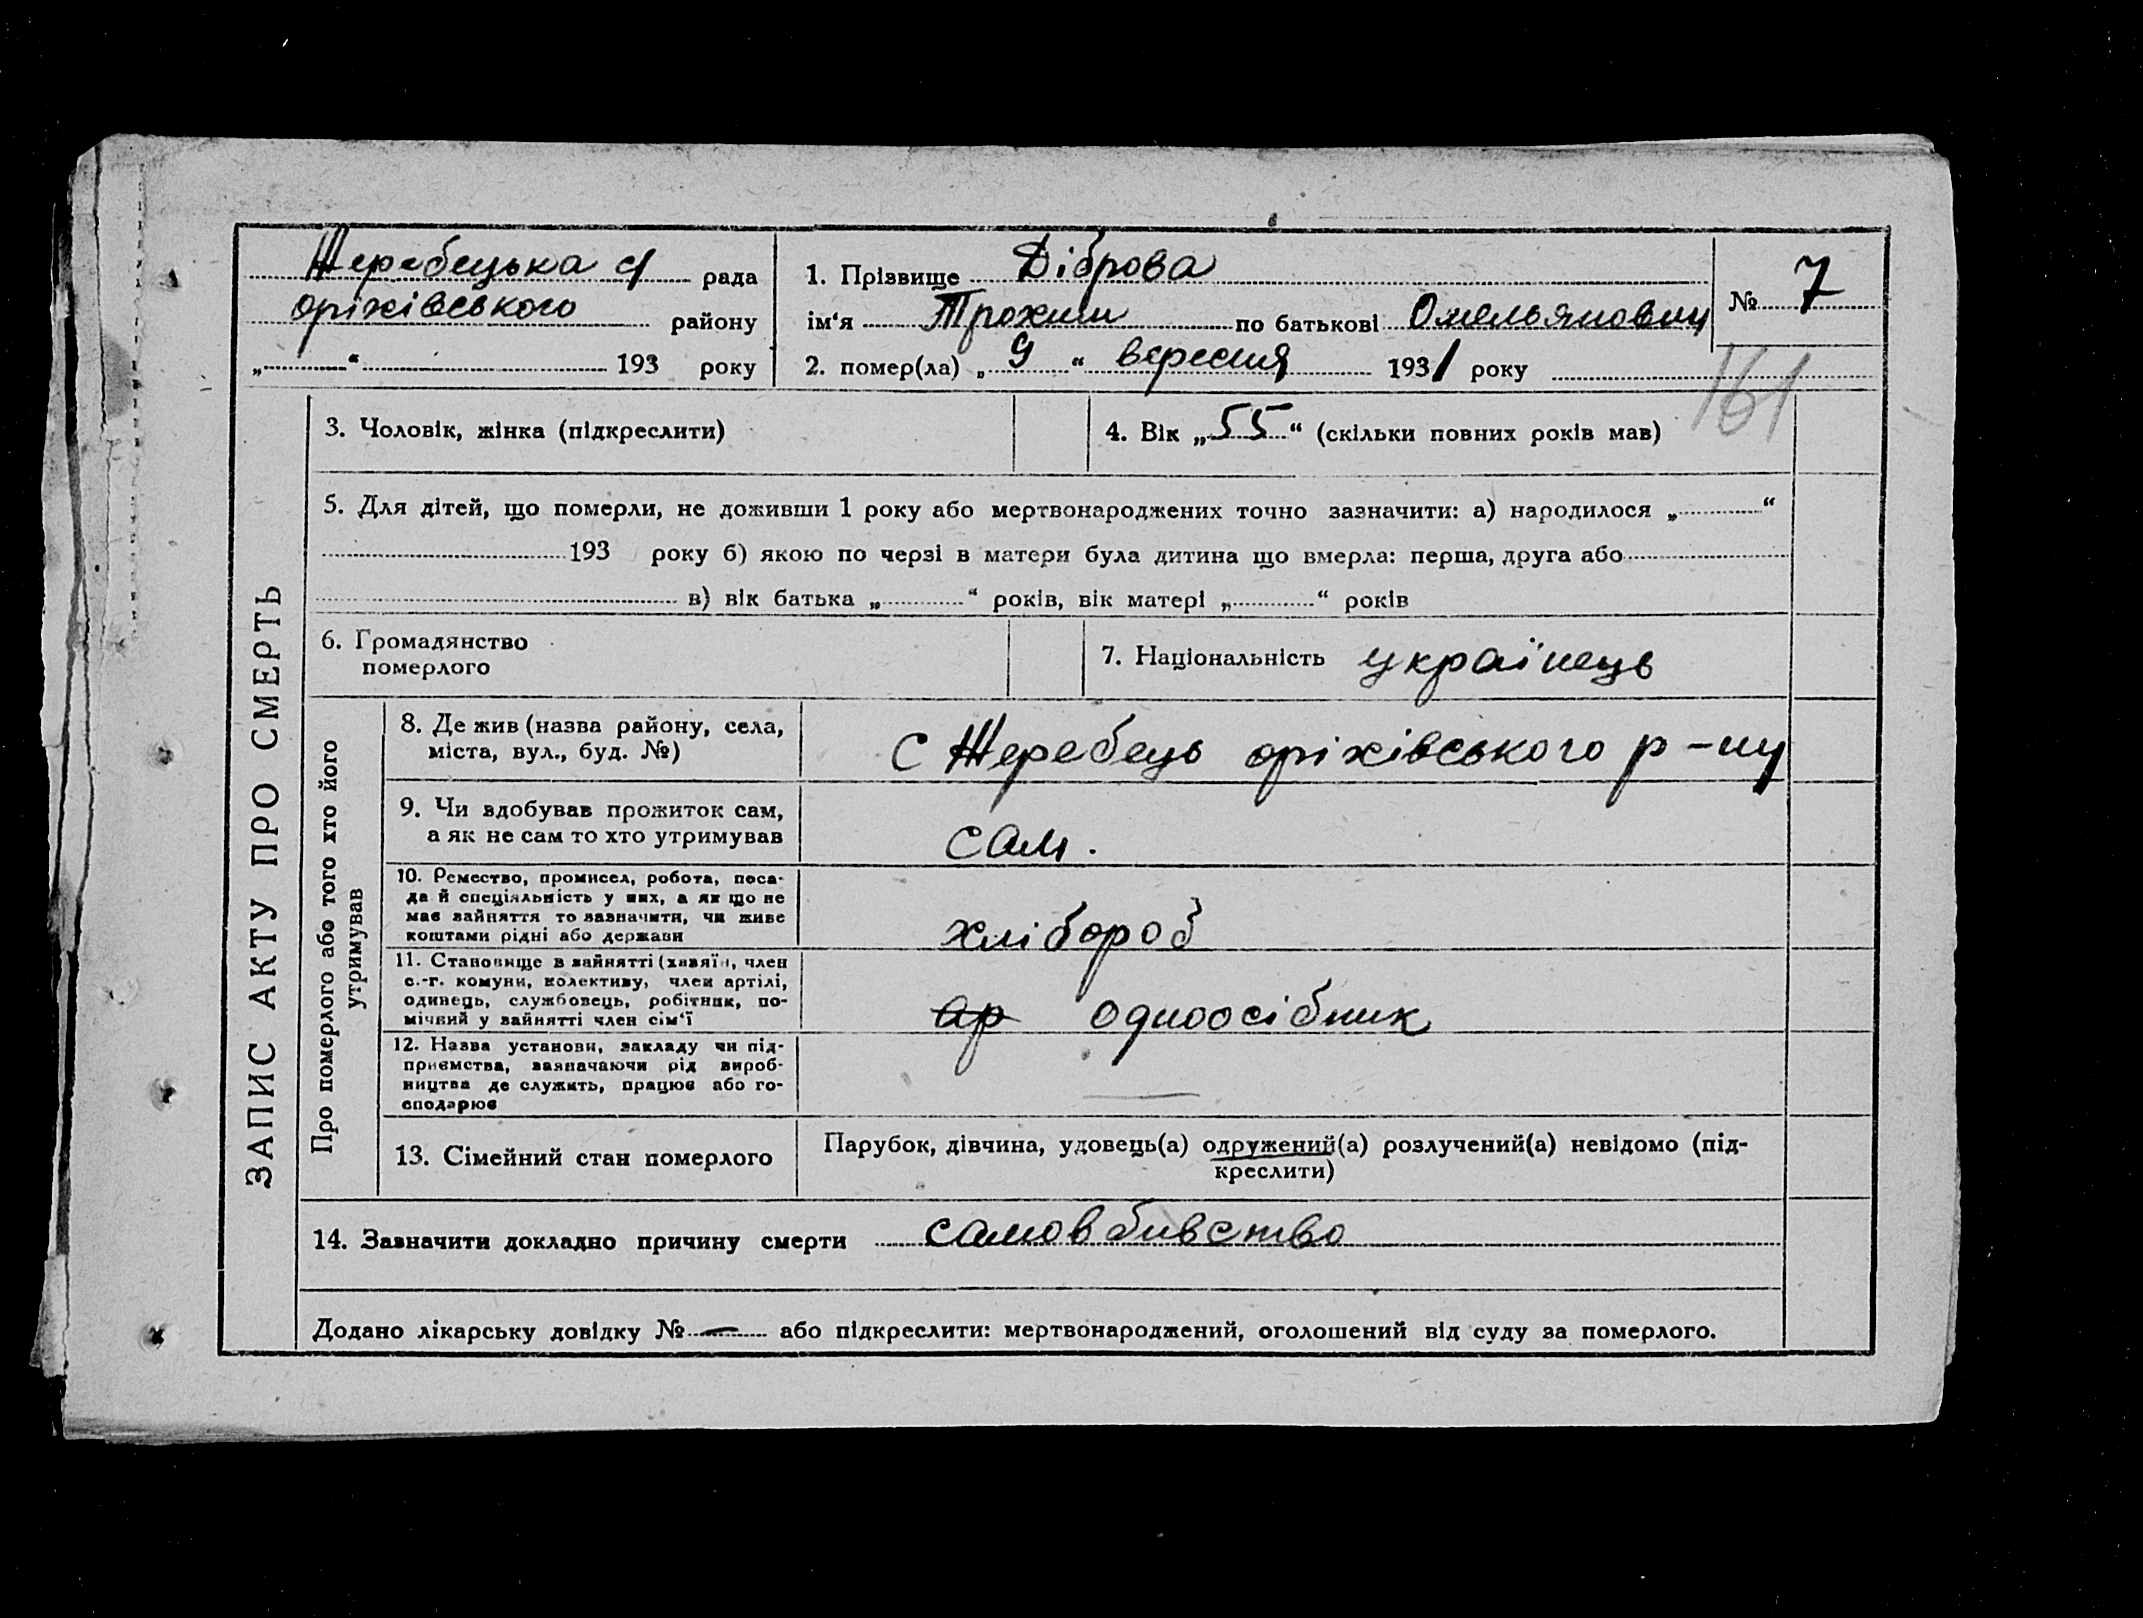 Жеребецька с/ рада
оріхівського району
„ “ 193 року
1. Прізвище Діброва
ім‘я Трохим по батькові Омельянович
2. помер(ла) „ 9 “ вересня 1931 року
№ 7
161
ЗАПИС АКТУ ПРО СМЕРТЬ
3. Чоловік, жінка (підкреслити)
4. Вік „ 55 “ (скільки повних років мав)
5. Для дітей, що померли, не доживши 1 року або мертвонароджених точно зазначити: а) народилося „ “
193 року б) якою по черзі в матери була дитина що вмерла: перша, друга або
в) вік батька „ “ років, вік матері „ “ років
6. Громадянство
померлого
7. Національність українець
Про померлого або того хто його
утримував
8. Де жив (назва району, села,
міста, вул., буд. №)
с Жеребець оріхівського р-ну
9. Чи вдобував прожиток сам,
а як не сам то хто утримував
сам.
10. Ремество, промисел, робота, поса-
да й спеціяльність у них, а як що не
має зайняття то зазначити, чи живе
коштами рідні або держави
хлібороб
11. Становище в зайнятті (хазяїн, член
с.-г. комуни, колективу, член артілі,
одинець, службовець, робітник, по-
мічний у зайнятті член сім‘ї
ар одноосібник
12. Назва установи, закладу чи під-
приємства, зазначаючи рід вироб-
ництва де служить, працює або го-
сподарює
13. Сімейний стан померлого
Парубок, дівчина, удовець(а) одружений(а) розлучений(а) невідомо (під-
креслити)
14. Зазначити докладно причину смерти самовбивство
Додано лікарську довідку № — або підкреслити: мертвонароджений, оголошений від суду за померлого.